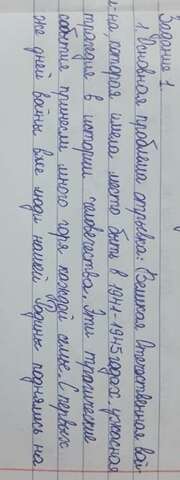 Задание 1
1. Основная проблема отрывка: Великая Отечественная вой-
на, которая имела место быть в 1941-1945 годах - ужасная
трагедия в истории человечества. Эти трагические
события принесли много горя каждой семье. С первых
же дней войны все люди нашей Родины поднялись на